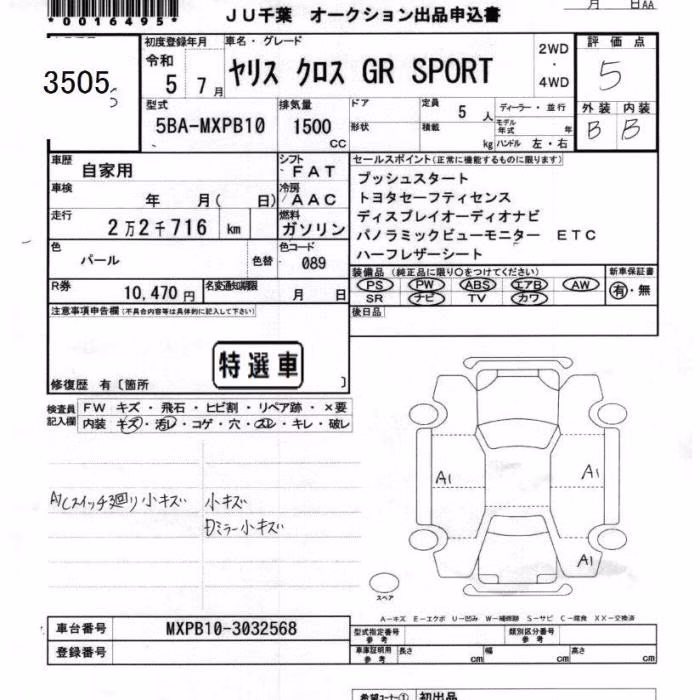 *0016495*
JU千葉 オークション出品申込書
月 日AA
3505
初度登録年月 令和 5 7月
車名・グレード
ヤリス クロス GR SPORT
2WD
・
4WD
評価点
5
型式
5BA-MXPB10
排気量
1500
CC
ドア
形状
定員 5 人
積載 kg
ディーラー・並行
モデル年式 年
ハンドル 左・右
外装 内装
B B
車歴
自家用
シフト
FAT
車検
年 月( 日)
冷房
AAC
走行
2万2千716 km
燃料
ガソリン
色
パール
色替
色コード
089
R券
10,470円
名変通知期限
月 日
セールスポイント(正常に機能するものに限ります)
プッシュスタート
トヨタセーフティセンス
ディスプレイオーディオナビ
パノラミックビューモニター ETC
ハーフレザーシート
装備品 (純正品に限り○をつけてください)
PS PW ABS エアB AW
SR ナビ TV カワ
新車保証書
有・無
後日品
注意事項申告欄(不具合内容等は具体的に記入して下さい)
特選車
修復歴 有〔箇所 〕
検査員記入欄
FW キズ・飛石・ヒビ割・リペア跡・×要
内装 キズ・汚レ・コゲ・穴・スレ・キレ・破レ
小キズ 小キズ
ミラー小キズ
A1
A1
A1
スペア
A-キズ E-エクボ U-凹み W-補修跡 S-サビ C-腐食 XX-交換済
車台番号
MXPB10-3032568
登録番号
型式指定番号 参考
類別区分番号 参考
車庫証明用 参考
長さ cm
幅 cm
高さ cm
希望コーナー① 初出品